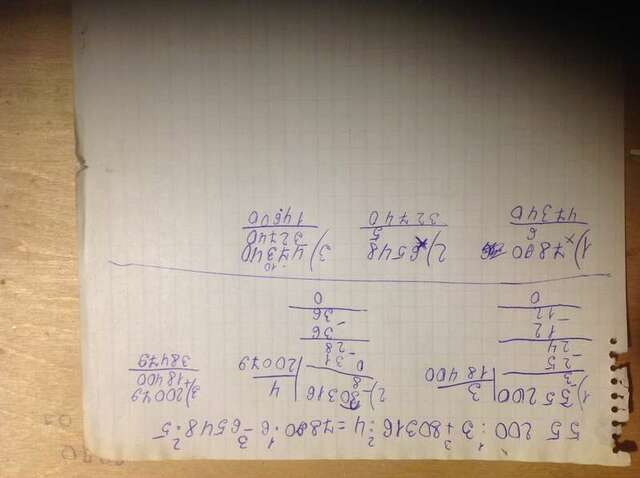 55 200 : 3 + 80316 : 4 = 7890 · 6 - 6548 · 5
1) 55200 | 3
- 3 | 18 400
- 25
24
12
- 12
0
2) - 80316 | 4
8 | 20079
0 31
- 28
36
- 36
0
3) 20079
+ 18400
38479
1) 7890
× 6
47340
2) × 6548
5
32740
3) 47340
- 32740
14600